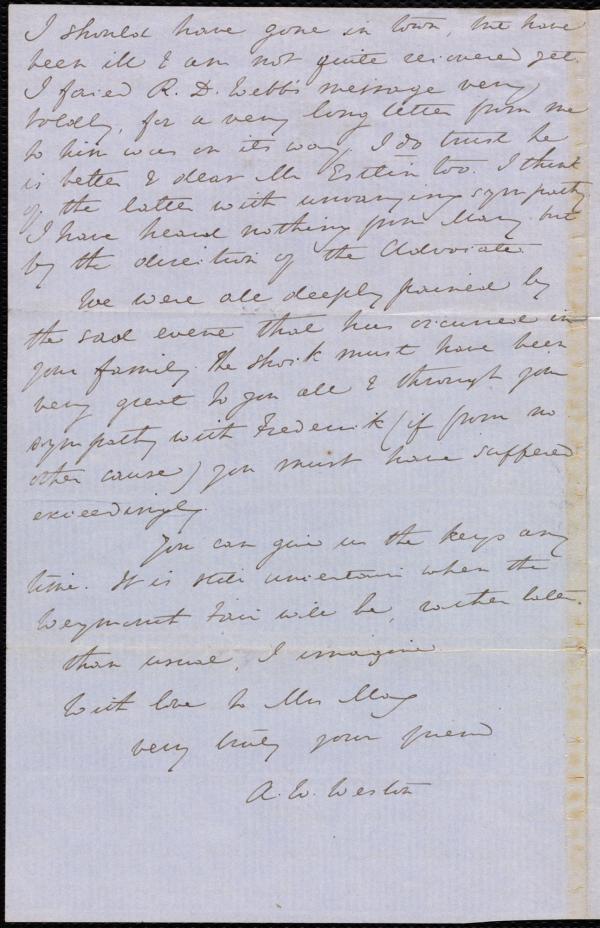 I should have gone in town, but have
been ill & am not quite recovered yet.
I fac'ed R. D. Webb's message very
boldly, for a very long letter from me
to him was on its way. I do trust he
is better & dear Mr Estlin too. I think
of the latter with unvarying sympathy
I have heard nothing from Mary but
by the direction of the Advocate.
We were all deeply pained by
the sad event that has occurred in
your family. The shock must have been
very great to you all & through your
sympathy with Frederick (if from no
other cause) you must have suffered
exceedingly.
You can give us the keys any
time. It is still uncertain when the
Weymouth Fair will be, rather later
than usual, I imagine
With love to Mrs May
very truly your friend
A. W. Weston